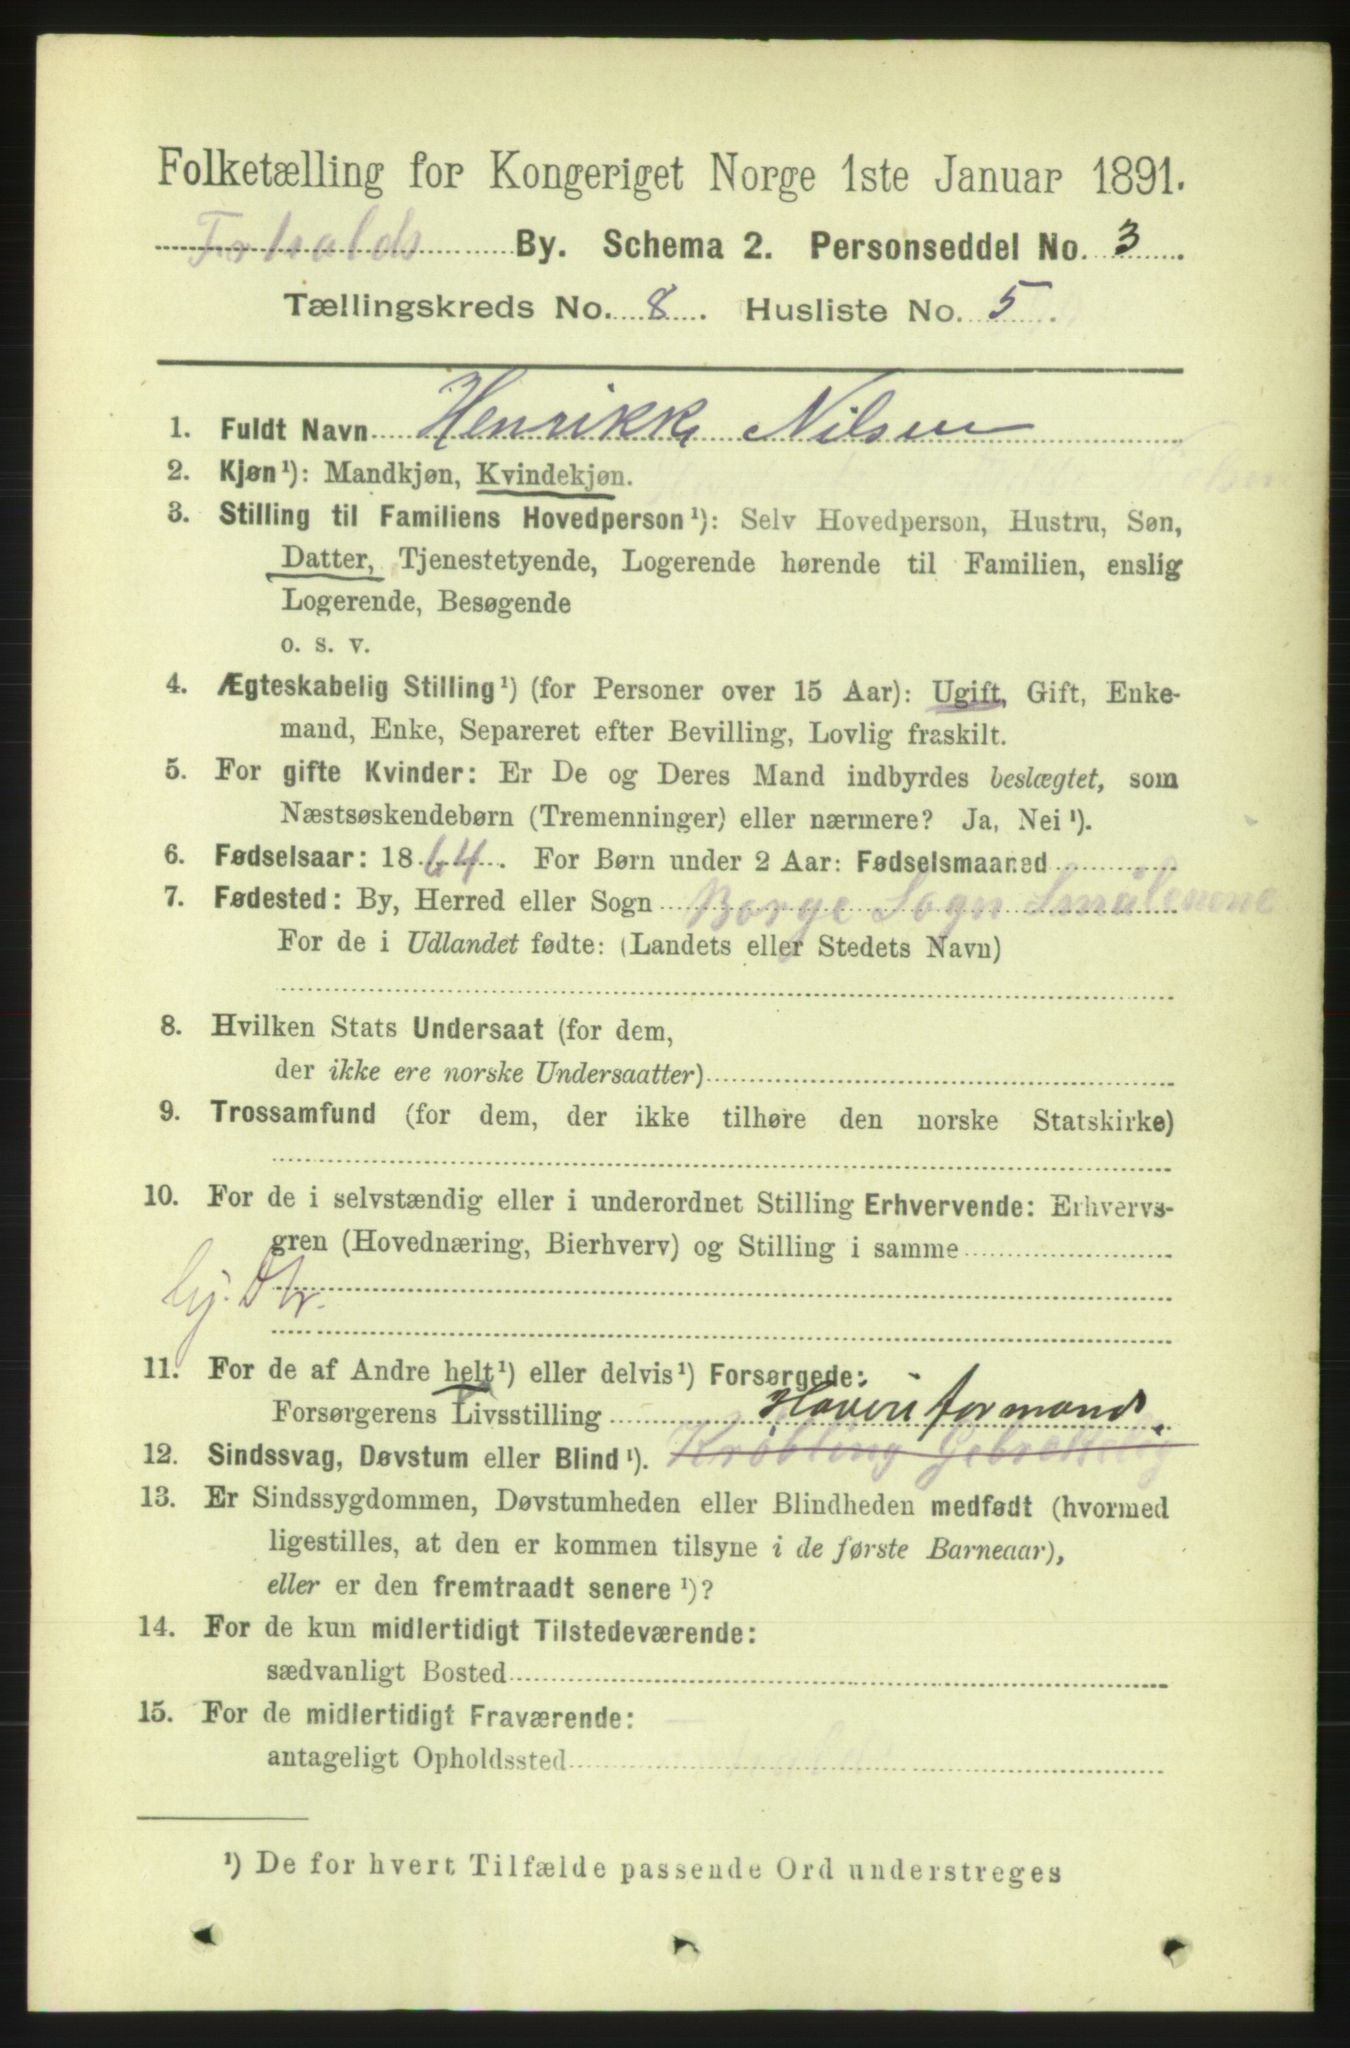 Folketælling for Kongeriget Norge 1ste Januar 1891.
By. Schema 2. Personseddel No. 3
Tællingskreds No. 8. Husliste No. 5.
1. Fuldt Navn Henrikke Nilsen
2. Kjøn¹): Mandkjøn, Kvindekjøn.
3. Stilling til Familiens Hovedperson¹): Selv Hovedperson, Hustru, Søn,
Datter, Tjenestetyende, Logerende hørende til Familien, enslig
Logerende, Besøgende
o. s. v.
4. Ægteskabelig Stilling¹) (for Personer over 15 Aar): Ugift, Gift, Enke-
mand, Enke, Separeret efter Bevilling, Lovlig fraskilt.
5. For gifte Kvinder: Er De og Deres Mand indbyrdes beslægtet, som
Næstsøskendebørn (Tremenninger) eller nærmere? Ja, Nei¹).
6. Fødselsaar: 1864. For Børn under 2 Aar: Fødselsmaaned
7. Fødested: By, Herred eller Sogn Borge Sogn Smålenene
For de i Udlandet fødte: (Landets eller Stedets Navn)
8. Hvilken Stats Undersaat (for dem,
der ikke ere norske Undersaatter)
9. Trossamfund (for dem, der ikke tilhøre den norske Statskirke)
10. For de i selvstændig eller i underordnet Stilling Erhvervende: Erhvervs-
gren (Hovednæring, Bierhverv) og Stilling i samme
11. For de af Andre helt¹) eller delvis¹) Forsørgede:
Forsørgerens Livsstilling formand
12. Sindssvag, Døvstum eller Blind¹).
13. Er Sindssygdommen, Døvstumheden eller Blindheden medfødt (hvormed
ligestilles, at den er kommen tilsyne i de første Barneaar),
eller er den fremtraadt senere¹)?
14. For de kun midlertidigt Tilstedeværende:
sædvanligt Bosted
15. For de midlertidigt Fraværende:
antageligt Opholdssted
¹) De for hvert Tilfælde passende Ord understreges